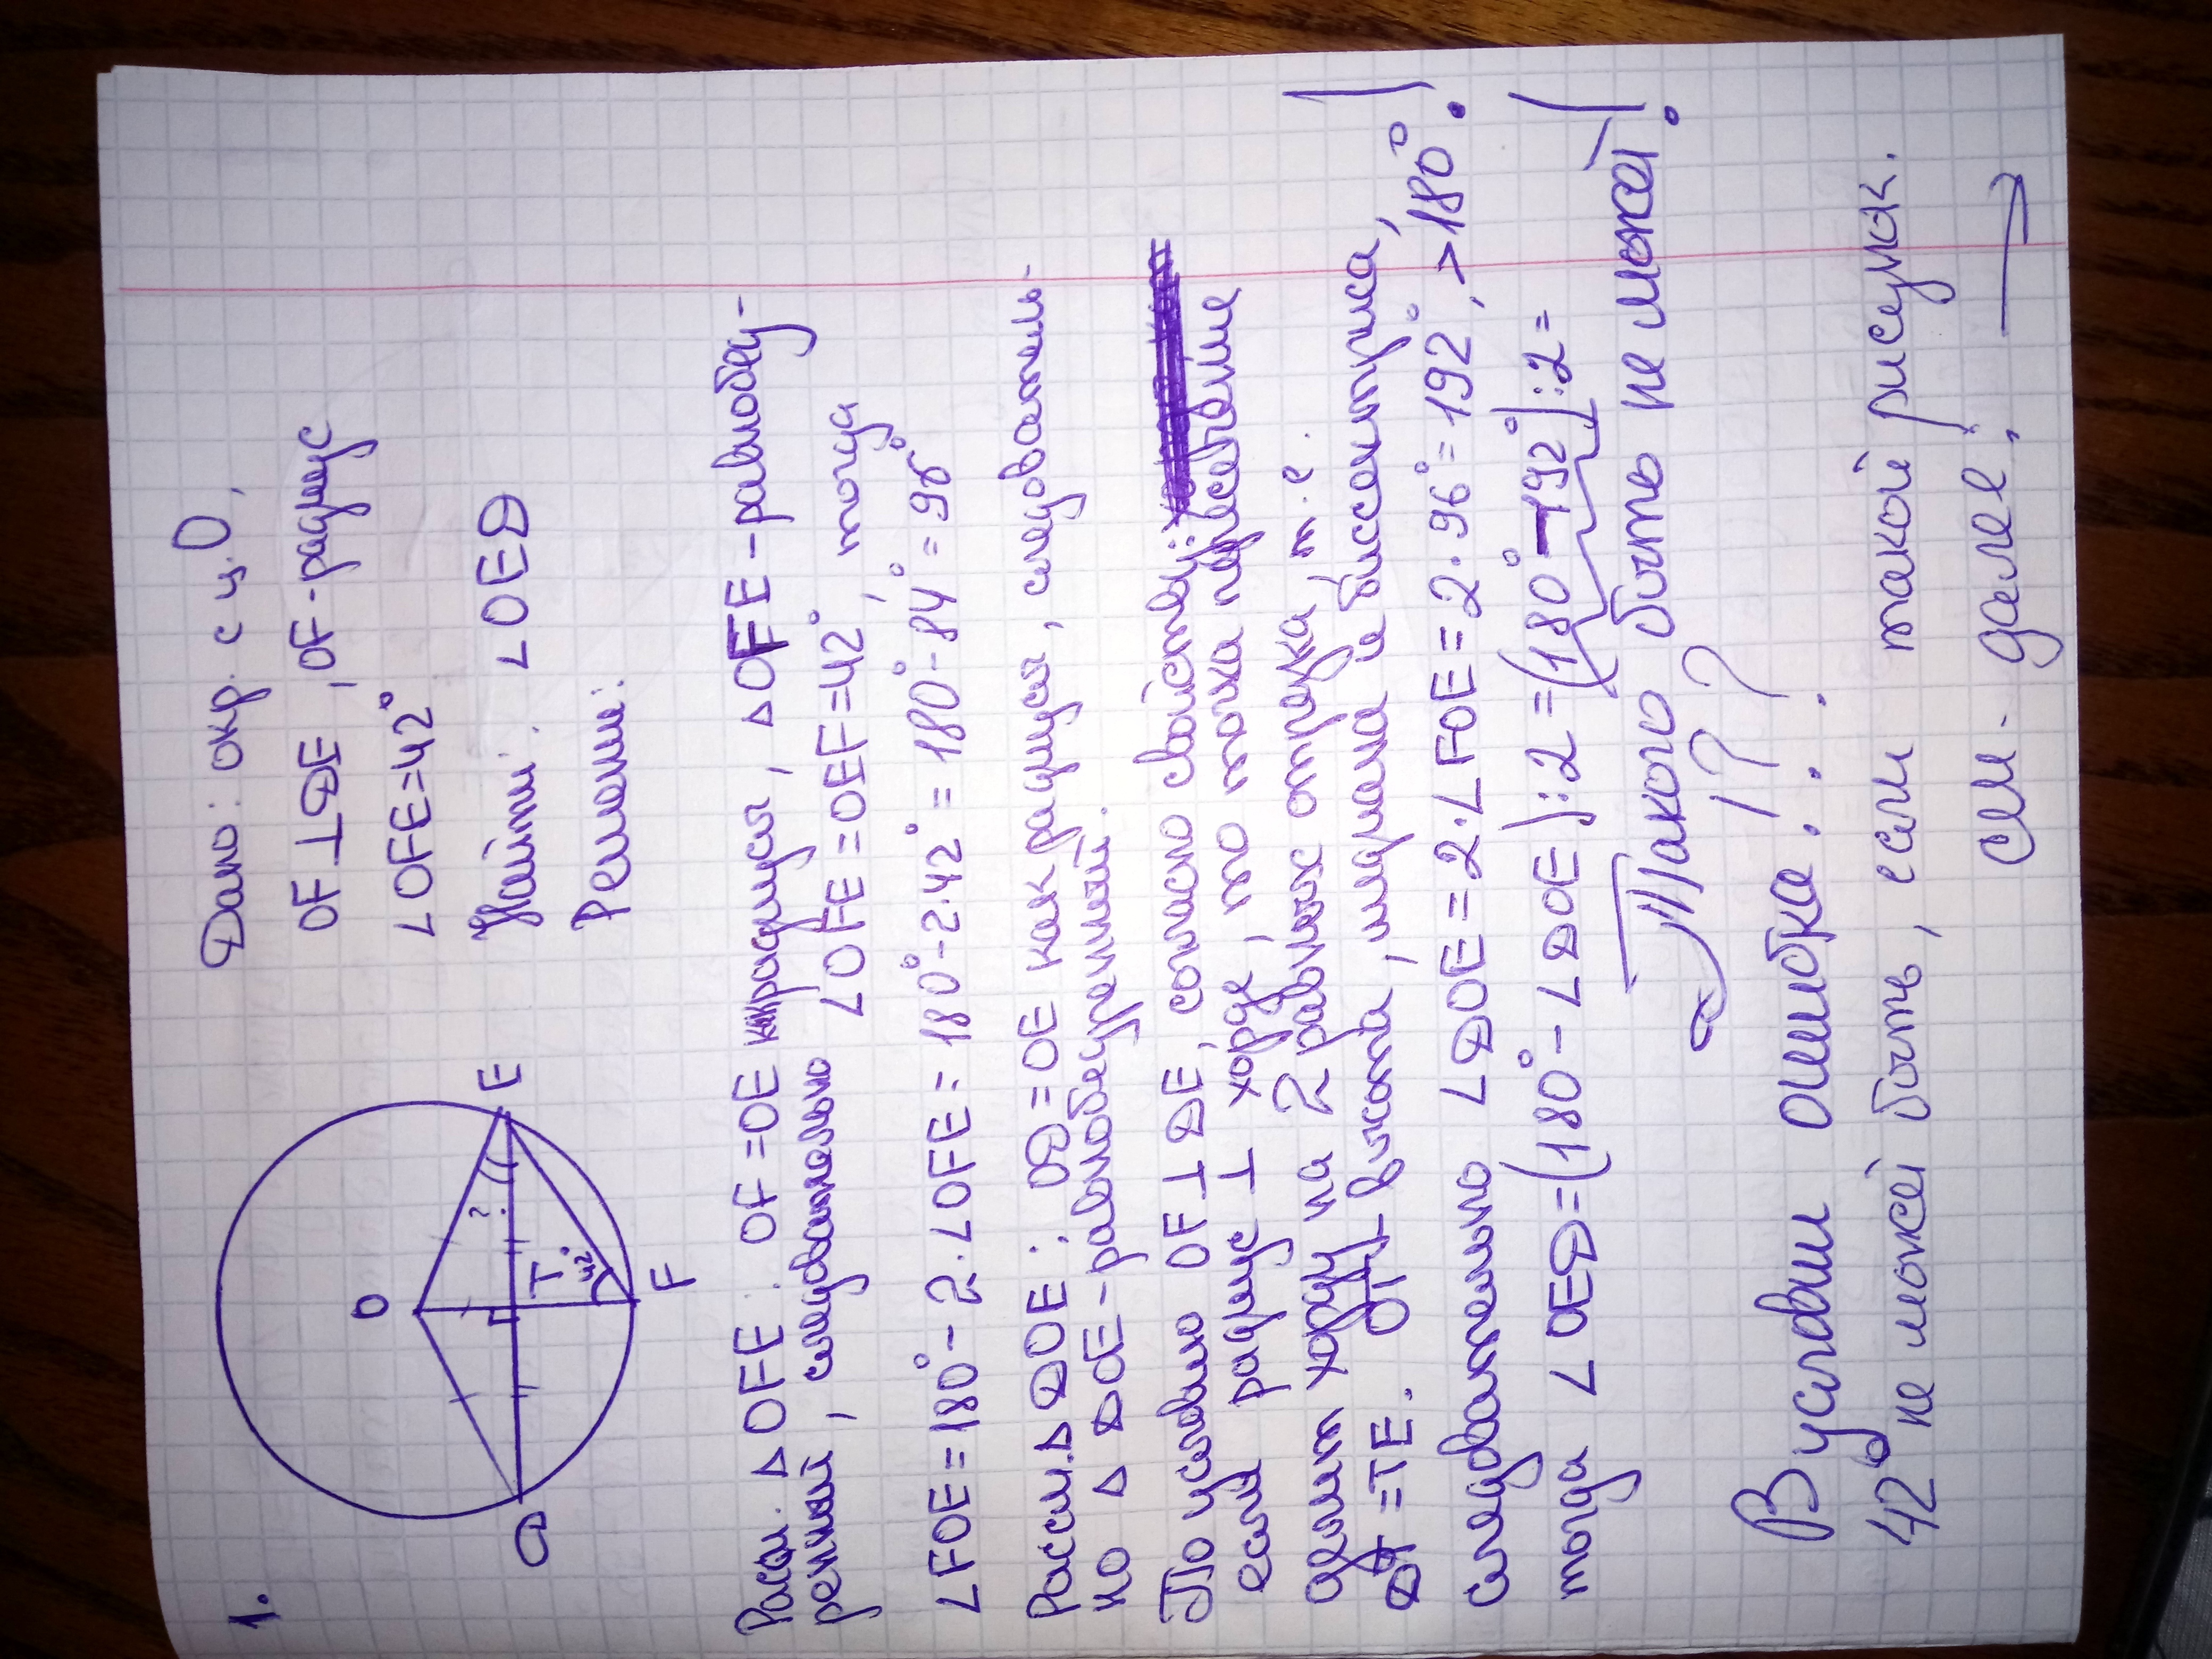 1.
Дано: окр. с ц. О,
OF ⊥ DE, OF - радиус
∠OFE = 42°
Найти: ∠OED
Решение:
O
D
E
T
F
?
42°
Расcм. ΔOFE: OF = OE как радиусы, ΔOFE - равнобед-
ренный, следовательно ∠OFE = OEF = 42°, тогда
∠FOE = 180° - 2·∠OFE = 180° - 2·42° = 180° - 84° = 96°
Рассм. ΔDOE: OD = OE как радиусы, следователь-
но Δ DOE - равнобедренный.
По условию OF ⊥ DE, согласно свойству:
если радиус ⊥ хорде, то точка пересечения
делит хорду на 2 равных отрезка, т.е.
DT = TE. OT - высота, медиана и биссектриса,
следовательно ∠DOE = 2·∠FOE = 2·96° = 192°, > 180°!
тогда ∠OED = (180° - ∠DOE):2 = (180° - 192°):2 =
Такого быть не может!
!??
В условии ошибка...
42° не может быть, если такой рисунок.
см. далее: →